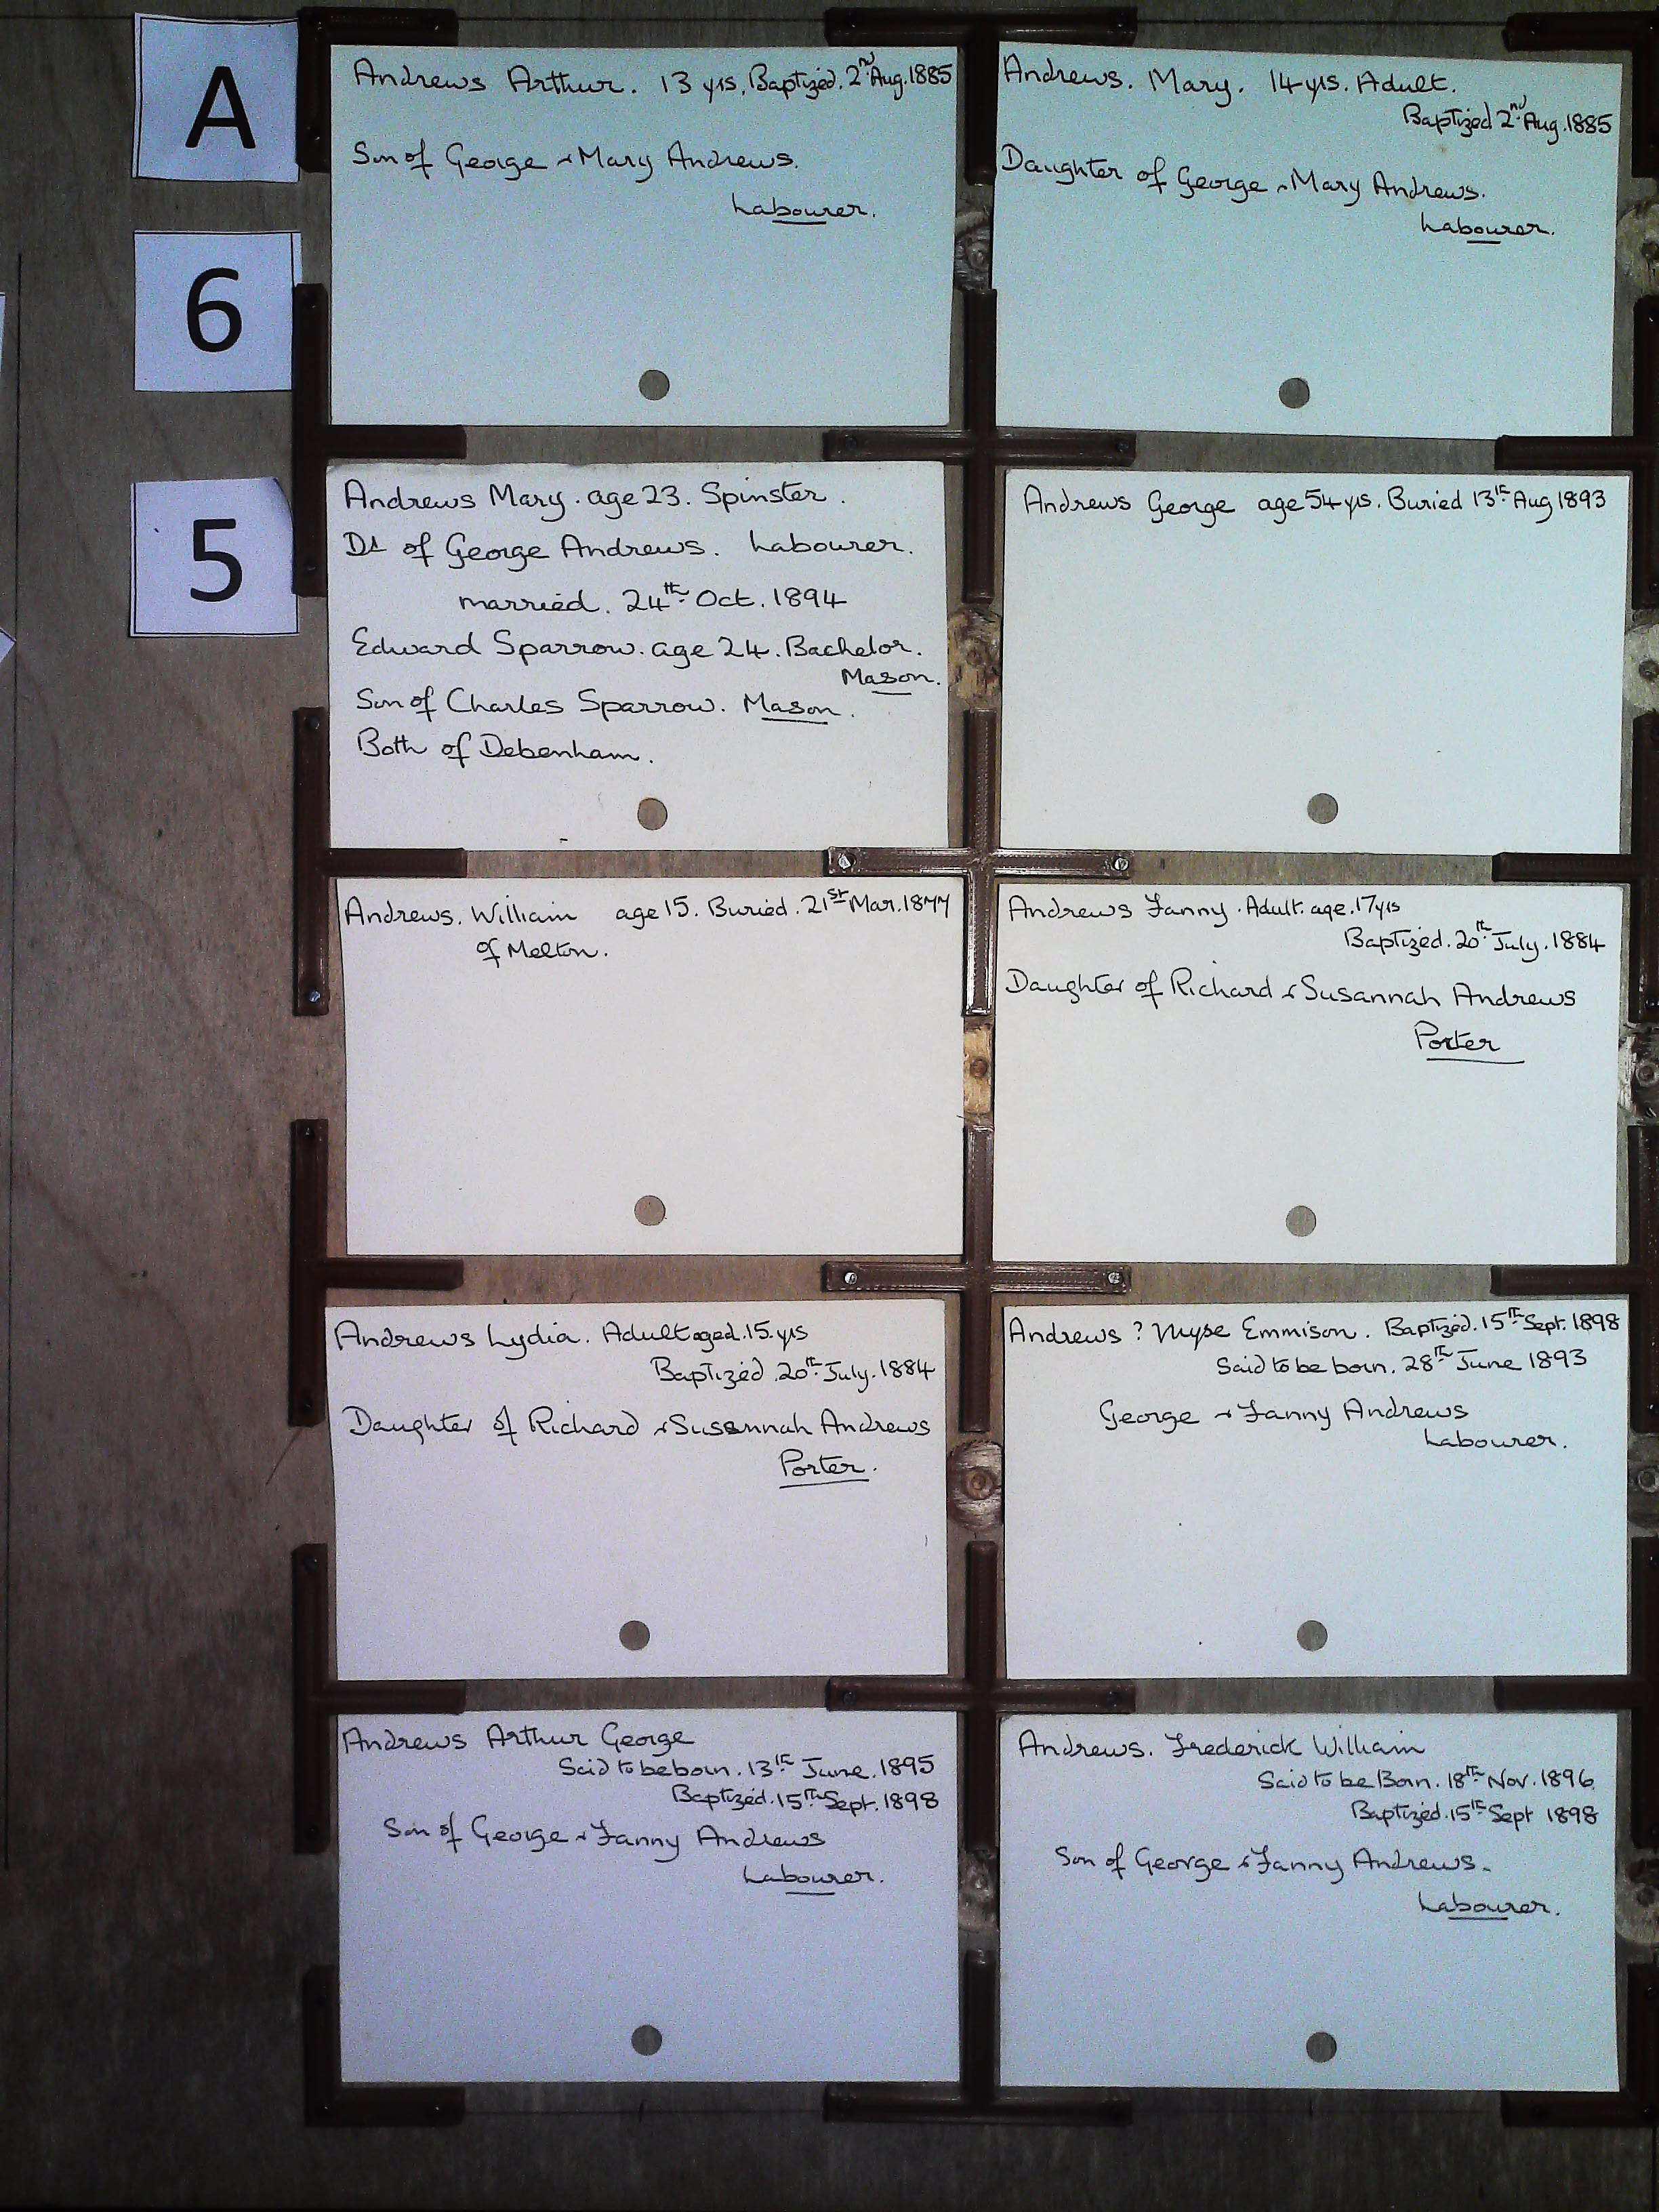 A
6
5
Andrews Arthur. 13 yrs, Baptized. 2nd Aug. 1885
Son of George & Mary Andrews.
Labourer.
Andrews. Mary. 14 yrs. Adult.
Baptized 2nd Aug. 1885
Daughter of George & Mary Andrews.
Labourer.
Andrews Mary. age 23. Spinster.
Dt of George Andrews. Labourer.
married. 24th Oct. 1894
Edward Sparrow. age 24. Bachelor.
Mason.
Son of Charles Sparrow. Mason.
Both of Debenham.
Andrews George age 54 yrs. Buried 13th Aug 1893
Andrews. William age 15. Buried. 21st Mar. 1877
of Melton.
Andrews Fanny. Adult. age. 17 yrs
Baptized. 20th July. 1884
Daughter of Richard & Susannah Andrews
Porter
Andrews Lydia. Adult aged. 15. yrs
Baptized. 20th July. 1884
Daughter of Richard & Susannah Andrews
Porter.
Andrews ? Myse Emmison. Baptized. 15th Sept. 1898
Said to be born. 28th June 1893
George & Fanny Andrews
Labourer.
Andrews Arthur George
Said to be born. 13th June. 1895
Baptized. 15th Sept. 1898
Son of George & Fanny Andrews
Labourer.
Andrews. Frederick William
Said to be Born. 18th Nov. 1896
Baptized. 15th Sept 1898
Son of George & Fanny Andrews.
Labourer.